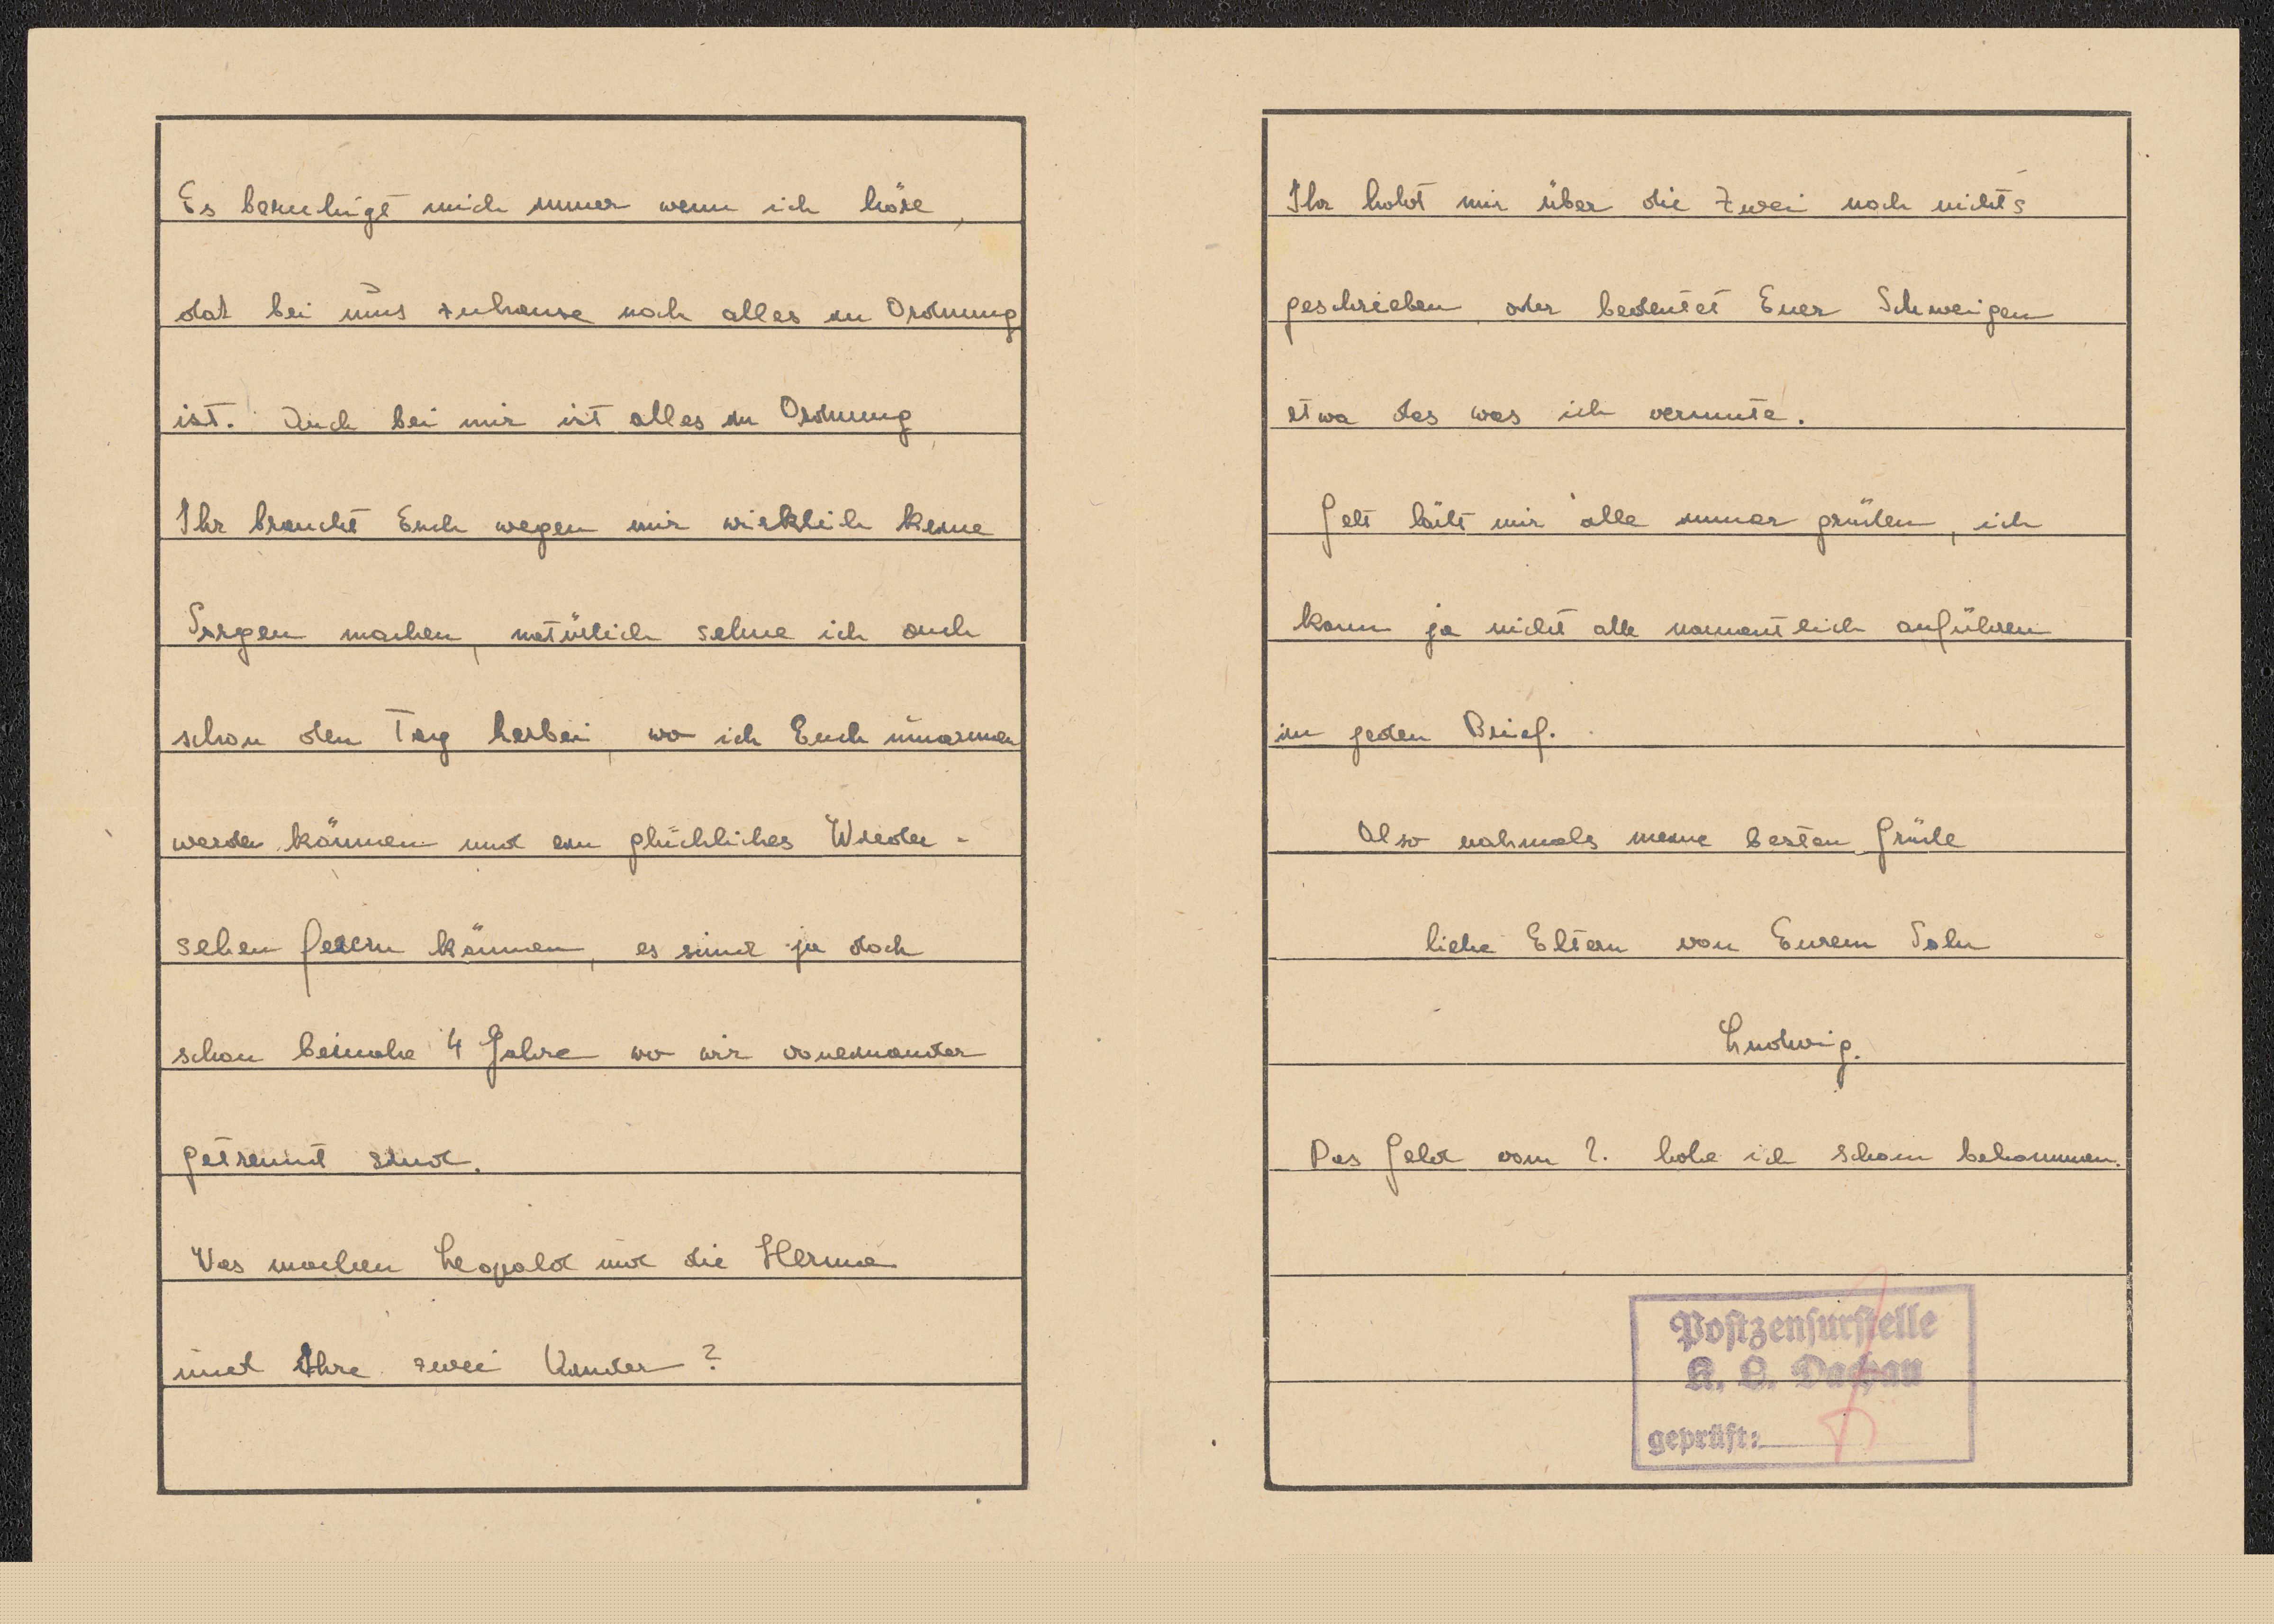 Es beruhigt mich immer wenn ich höre,
daß bei uns zuhause noch alles in Ordnung
ist. Auch bei mir ist alles in Ordnung
Ihr braucht Euch wegen mir wirklich keine
Sorgen machen, natürlich sehne ich auch
schon den Tag herbei, wo ich Euch umarmen
werde können und ein glückliches Wieder-
sehen feiern können, es sind ja doch
schon beinahe 4 Jahre wo wir voneinander
getrennt sind.
Was machen Leopold und die Herma
und Ihre zwei Kinder?
Ihr habt mir über die Zwei noch nichts
geschrieben oder bedeutet Euer Schweigen
etwa das was ich vermute.
Gelt läßt mir alle immer grüßen, ich
kann ja nicht alle namentlich anführen
im jeden Brief.
Also nochmals meine besten Grüße
liebe Eltern von Eurem Sohn
Ludwig.
Das Geld vom 2. habe ich schon bekommen.
Postzensurstelle
K. L. Dachau
geprüft: